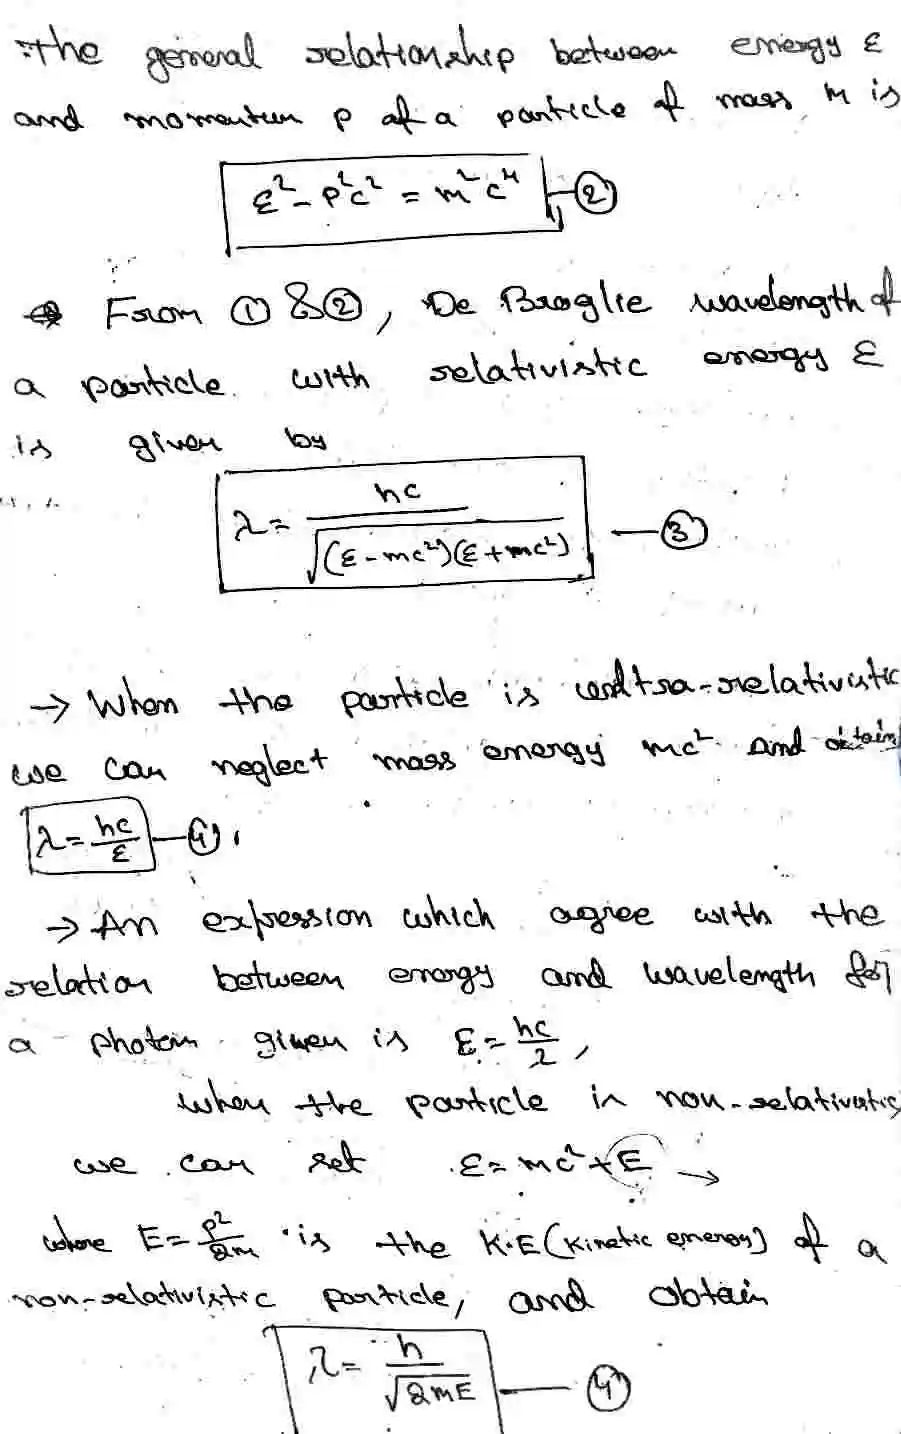 The general relationship between energy ε
and momentum p of a particle of mass m is
ε² - p²c² = m²c⁴ —②
From ① & ②, De Broglie wavelength of
a particle with relativistic energy ε
is given by
λ = hc / √(ε-mc²)(ε+mc²) —③
→ When the particle is ultra-relativistic
we can neglect mass energy mc² and obtain
λ = hc/ε —④.
→ An expression which agree with the
relation between energy and wavelength for
a photon given is ε = hc/λ,
when the particle is non-relativistic
we can set ε = mc² + E →
where E = p²/2m is the K.E (Kinetic energy) of a
non-relativistic particle, and obtain
λ = h/√2mE —④